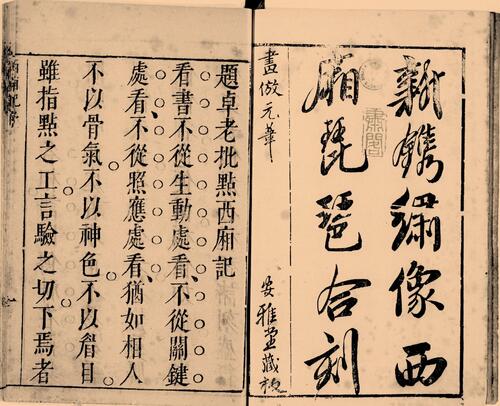 新鐫繡像西
廂琵琶合刻
畫倣元筆
安雅堂藏板
題卓老批點西廂記
看書不從生動處看、不從關鍵
處看不從照應處看、猶如相人
不以骨氣不以神色不以眉目
雖指點之工言驗之切下焉者